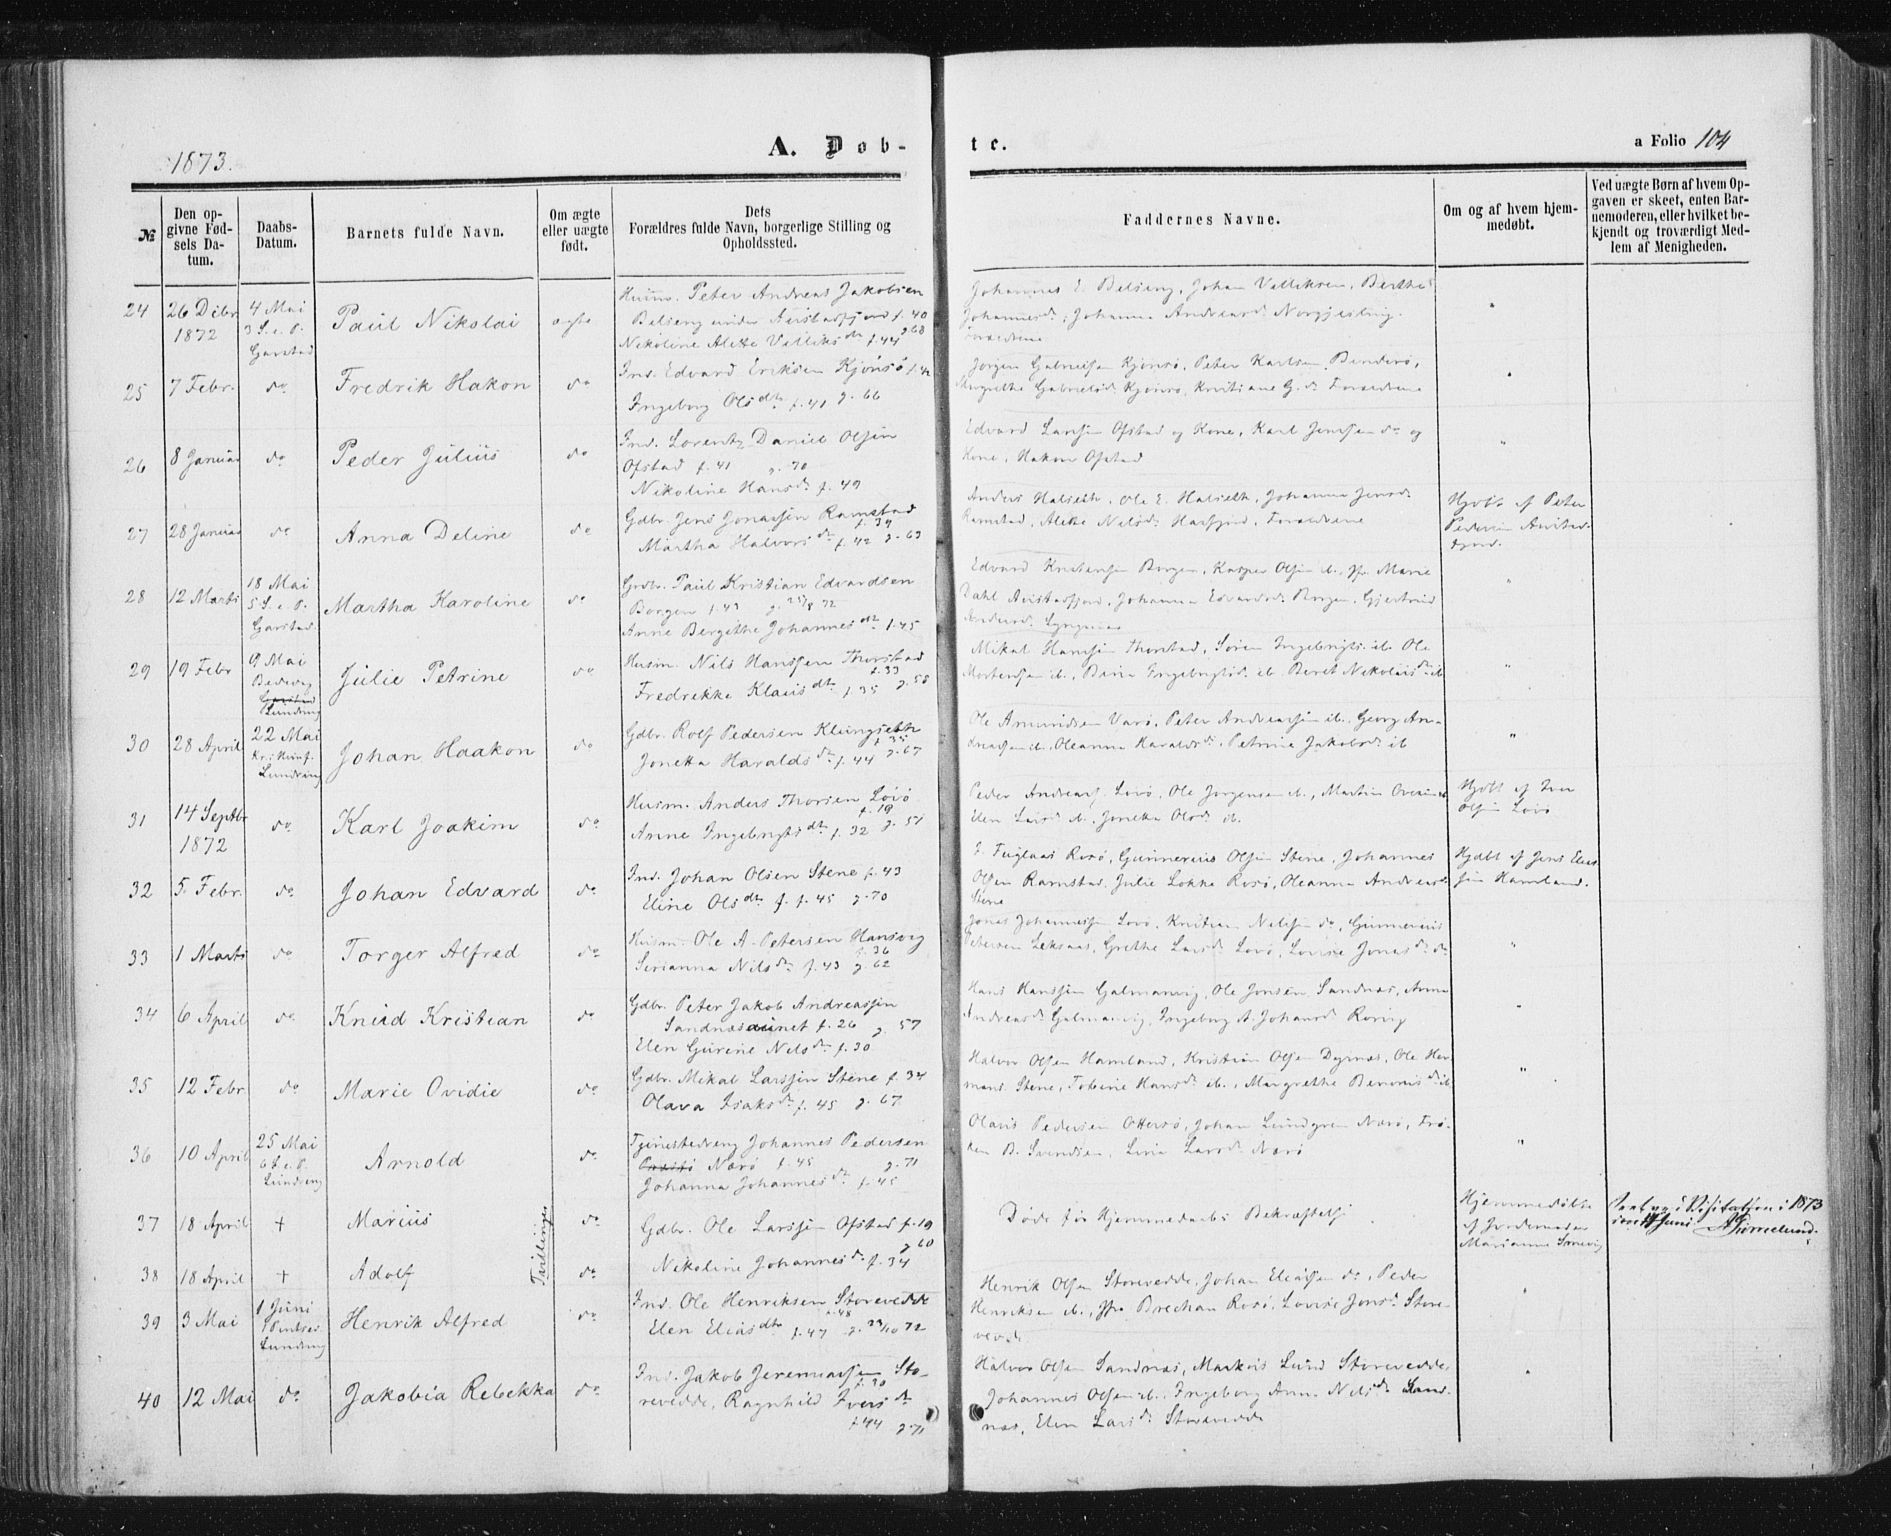 1873.
A. Døb-
te.
a Folio 104
№
Den op-
givne Fød-
sels Da-
tum.
Daabs-
Datum.
Barnets fulde Navn.
Om ægte
eller uægte
født.
Dets
Forældres fulde Navn, borgerlige Stilling og
Opholdssted.
Faddernes Navne.
Om og af hvem hjem-
medøbt.
Ved uægte Børn af hvem Op-
gaven er skeet, enten Bar-
nemoderen, eller hvilket be-
kjendt og troværdigt Med-
lem af Menigheden.
24
26 Dcbr
1872
4 Mai
3 S. e. P.
Garstad
Paul Nikolai
ægte
Husm. Peter Andreas Jakobsen
Belseng under Aarstadfjord f. 40
Nikoline Alette Villiks dtr f. 44 g. 68
Johannes E. Belseng, Johan Velliksen, Berthe
Johannesd., Johanna Andreasd.
Forældrene
25
7 Febr.
do
Fredrik Hakon
do
Ind. Edvard Eriksen Kjønsø f. 42
Ingeborg Ols dtr f. 41 g. 66
Jørgen Gabrielsen Kjønsø, Peter Karlsen Benderø,
Margrethe Gabrielsd. Kjønsø, Kristiane G. d. Forældrene
26
8 Januar
do
Peder Julius
do
Ind. Lorentz Daniel Olsen
Ofstad f. 41 g. 70
Nikoline Hansd. f. 49
Edvard Larssen Ofstad og Kone, Karl Jenssen do og
Kone, Hakon Ofstad
27
28 Januar
do
Anna Deline
do
Gdbr. Jens Jonassen Ramstad
f. 34
Martha Halvors d. f. 42 g. 63
Anders Halseth, Ole E. Halseth, Johanna Jensd.
Ramstad, Alette Nilsd. Havfjord, Forældrene
Hjdbt. af Peter
Pedersen
28
12 Marts
18 Mai
5 S. e. P.
Garstad
Martha Karoline
do
Grdbr. Paul Kristian Edvardsen
Borgen f. 43 g. 25/8 72
Anne Bergithe Johannesdtr f. 45
Edvard Kristensen Borgen, Kasper Olsen ib., Jfr. Marie
Dahl Aarstadfjord, Johanna Edvardsd. Borgen, Gjertrud
Andersd. Lyngsnes
29
19 Febr
9 Mai
Bededag
Garstad
Lundring
Julie Petrine
do
Husm. Nils Hanssen Thorstad
f. 33
Fredrekke Klausdtr f. 35 g. 58
Mikal Hanssen Thorstad, Søren Ingebrigts. ib. Ole
Mortenssen ib., Bina Ingebrigtsd. ib. Beret Nikolaisd. ib
30
28 April
22 Mai
Kr. Himf.
Lundring
Johan Haakon
do
Gdbr. Rolf Pedersen Klungseth
f. 35
Jonetta Haralds d. f. 44 g. 67
Ole Amundsen Varø, Peter Andreassen ib. Georg An-
dreassen ib. Oleanna Haraldsd., Petrine Jakobsd. ib
31
14 Septbr
1872
do
Karl Joakim
do
Husm. Anders Thorsen Lovø
f. 19
Anne Ingebrigts dtr f. 32 g. 51
Peder Andreass. Lovø, Ole Jørgensen ib., Martin ib
Elen Larsd. ib., Jonetta Olsd. ib.
Hjdbt af Iver
Olsen Lovø
32
5 Febr.
do
Johan Edvard
do
Ind. Johan Olsen Stene f. 43
Eline Olsdtr f. 45 g. 70
J. Fuglaas Rosø, Gunnerius Olsen Stene, Johannes
Olsen Ramstad, Julie Løkke Rosø, Oleanna Andreasd.
Stene
Hjdbt af Jens Elias
sen Hamland.
33
1 Marts
do
Torger Alfred
do
Husm. Ole A. Petersen Hansvig
f. 36
Serianna Nils d. f. 43 g. 62
Jonas Johannessen Lovø, Kristian Nilssen do, Gunnerius
Petersen Leksaas, Grethe Larsd. Lovø, Lovise Jonasd. do
34
6 April
do
Knud Kristian
do
Gdbr. Peter Jakob Andreassen
Sandnæsaunet f. 26 g. 57
Elen Gurine Nils d. f. 30
Hans Hanssen Galmanvig, Ole Jonsen Sandnæs, Anna
Andreasd. Galmanvig, Ingeborg A. Johansd. Rørvig
35
12 Febr
do
Marie Ovidie
do
Gdbr. Mikal Larssen Stene f. 34
Olava Isaks d. f. 45 g. 67
Halvor Olsen Hamland, Kristian Olsen Dyrnæs, Ole Her
mans. Stene, Tobine Hansd. ib., Margrethe Benonisd. ib
36
10 April
25 Mai
6 S. e. P.
Lundring
Arnold
do
Tjenestedreng Johannes Pedersen
Nærø f. 45 g. 71
Johanna Johannes d. f. 45
Olaus Pedersen Ottersø, Johan Lundgren Nærø, Frø-
ken B. Svendsen, Lina Larsd. Nærø
37
18 April
+
Marius
Tvillinger
do
Gdbr. Ole Larssen Ofstad f. 19
g. 60
Nikoline Johannes d. f. 34
Døde før Hjemmedaabs Bekræftelse
Hjemmedøbte
af Jordemoder
Marianne
Visitation i 1873
Juni
38
18 April
+
Adolf
do
39
3 Mai
1 Juni
1 Pintsed.
Lundring
Henrik Alfred
do
Ind. Ole Henriksen Storevedde
f. 48
Elen Eliasdtr f. 47 g. 23/10 72
Henrik Olsen Storevedde, Johan Eliassen do, Peder
Henriksen ib., Jfr. Brechan Rosø, Lovise Jonsd. Store-
vedde
40
12 Mai
do
Jakobia Rebekka
do
Ind. Jakob Jeremiassen Sto-
f. 30
revedde, Ragnhild Ivers d.
f. 44 g. 71
Halvor Olsen Sandnæs, Markus Lund Storevedde,
Johannes Olsen ib., Ingeborg Anna Nilsd. Sand-
næs, Elen Larsd. Storevedde